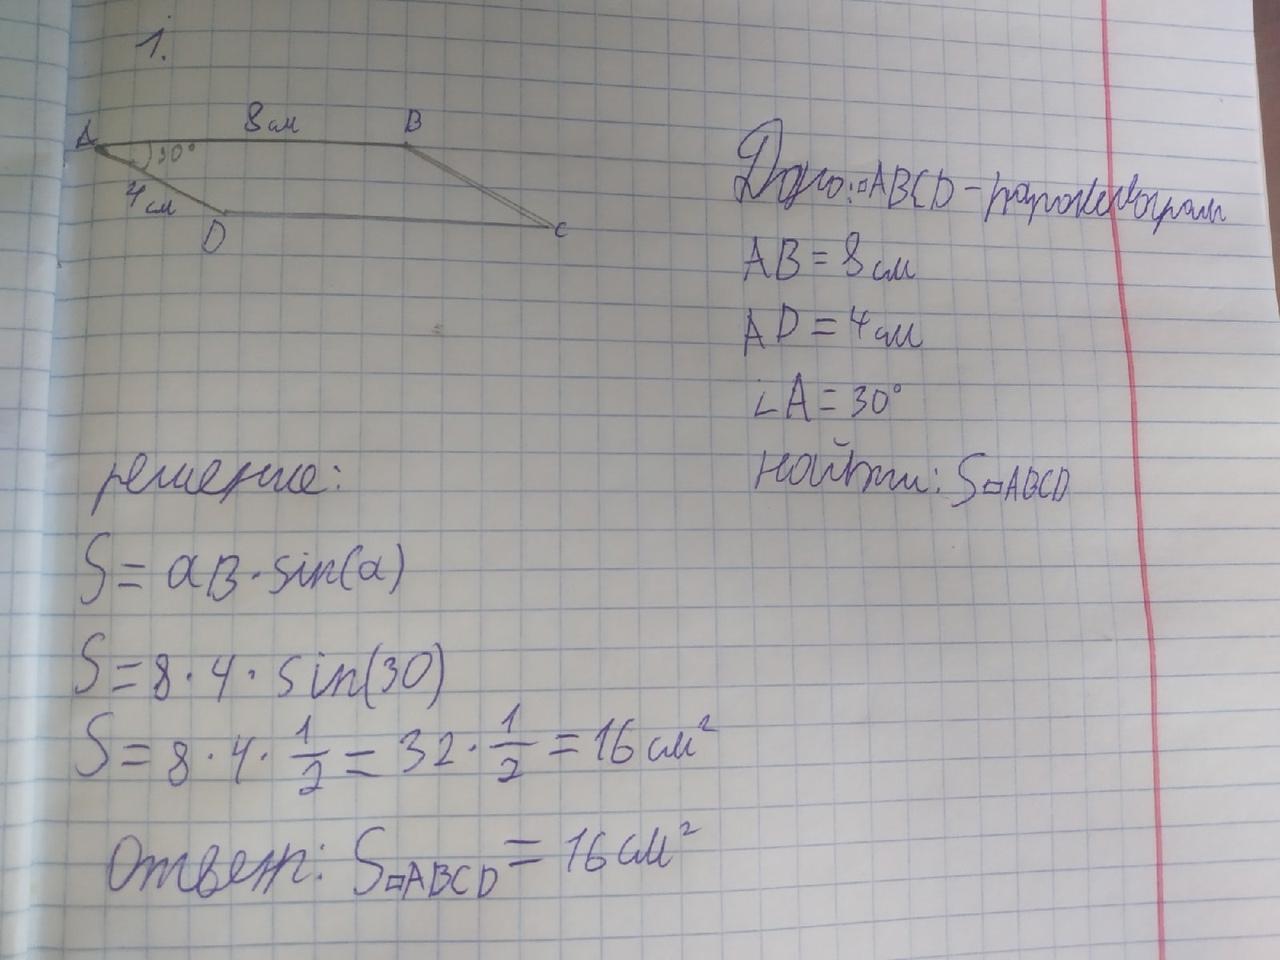 1.
8 см
A
B
30°
4 см
D
C
Дано: ▱ABCD – параллелограм
AB = 8 см
AD = 4 см
∠A = 30°
найти: S▱ABCD
решение:
S = aB · sin(a)
S = 8 · 4 · sin(30)
S = 8 · 4 · 1/2 = 32 · 1/2 = 16 см²
Ответ: S▱ABCD = 16 см²